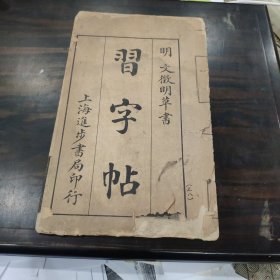 明 文徵明草書
習字帖
上海進步書局印行